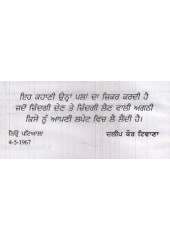 ਇਹ ਕਹਾਣੀ ਉਨ੍ਹਾਂ ਪਲਾਂ ਦਾ ਜ਼ਿਕਰ ਕਰਦੀ ਹੈ
ਜਦੋਂ ਜ਼ਿੰਦਗੀ ਦੇਣ ਤੇ ਜ਼ਿੰਦਗੀ ਲੈਣ ਵਾਲੀ ਅਗਨੀ
ਕਿਸੇ ਨੂੰ ਆਪਣੀ ਲਪੇਟ ਵਿਚ ਲੈ ਲੈਂਦੀ ਹੈ।
ਨਿਊ ਪਟਿਆਲਾ
ਦਲੀਪ ਕੌਰ ਟਿਵਾਣਾ
4-5-1967